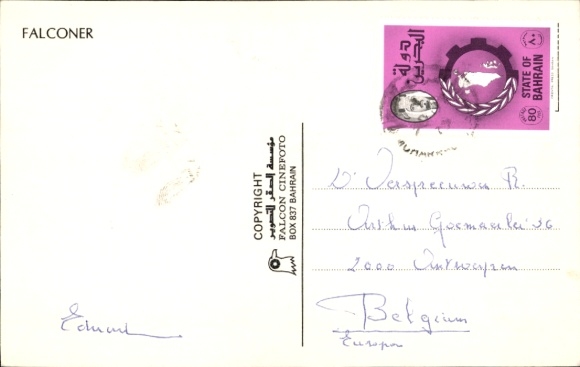 FALCONER
دولة
البحرين
STATE OF
BAHRAIN
٨٠
80
COPYRIGHT
مؤسسة الصقر للتصوير
FALCON CINEFOTO
BOX 837 BAHRAIN
Dr Verspreeuwen R.
Arthur Goemaerelei 36
2000 Antwerpen
Belgium
Europa